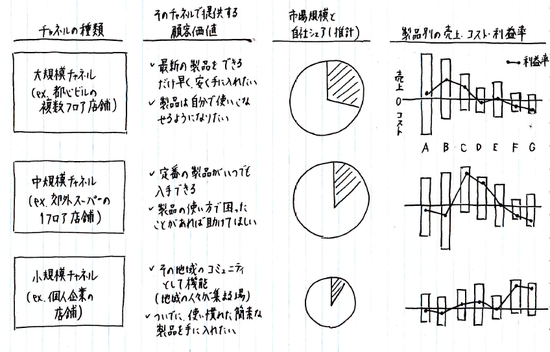 チャネルの種類
そのチャネルで提供する
顧客価値
市場規模と
自社シェア(推計)
製品別の売上・コスト・利益率
大規模チャネル
(ex. 都心ビルの
複数フロア店舗)
✓ 最新の製品をできる
だけ早く、安く手に入れたい
✓ 製品は自分で使いこな
せるようになりたい
売上
0
コスト
利益率
A B C D E F G
中規模チャネル
(ex. 郊外スーパーの
1フロア店舗)
✓ 定番の製品がいつでも
入手できる
✓ 製品の使い方で困った
ことがあれば助けてほしい
小規模チャネル
(ex. 個人企業の
店舗)
✓ その地域のコミュニティ
として機能
(地域の人々が集まる場)
✓ ついでに、使い慣れた簡素な
製品を手に入れたい